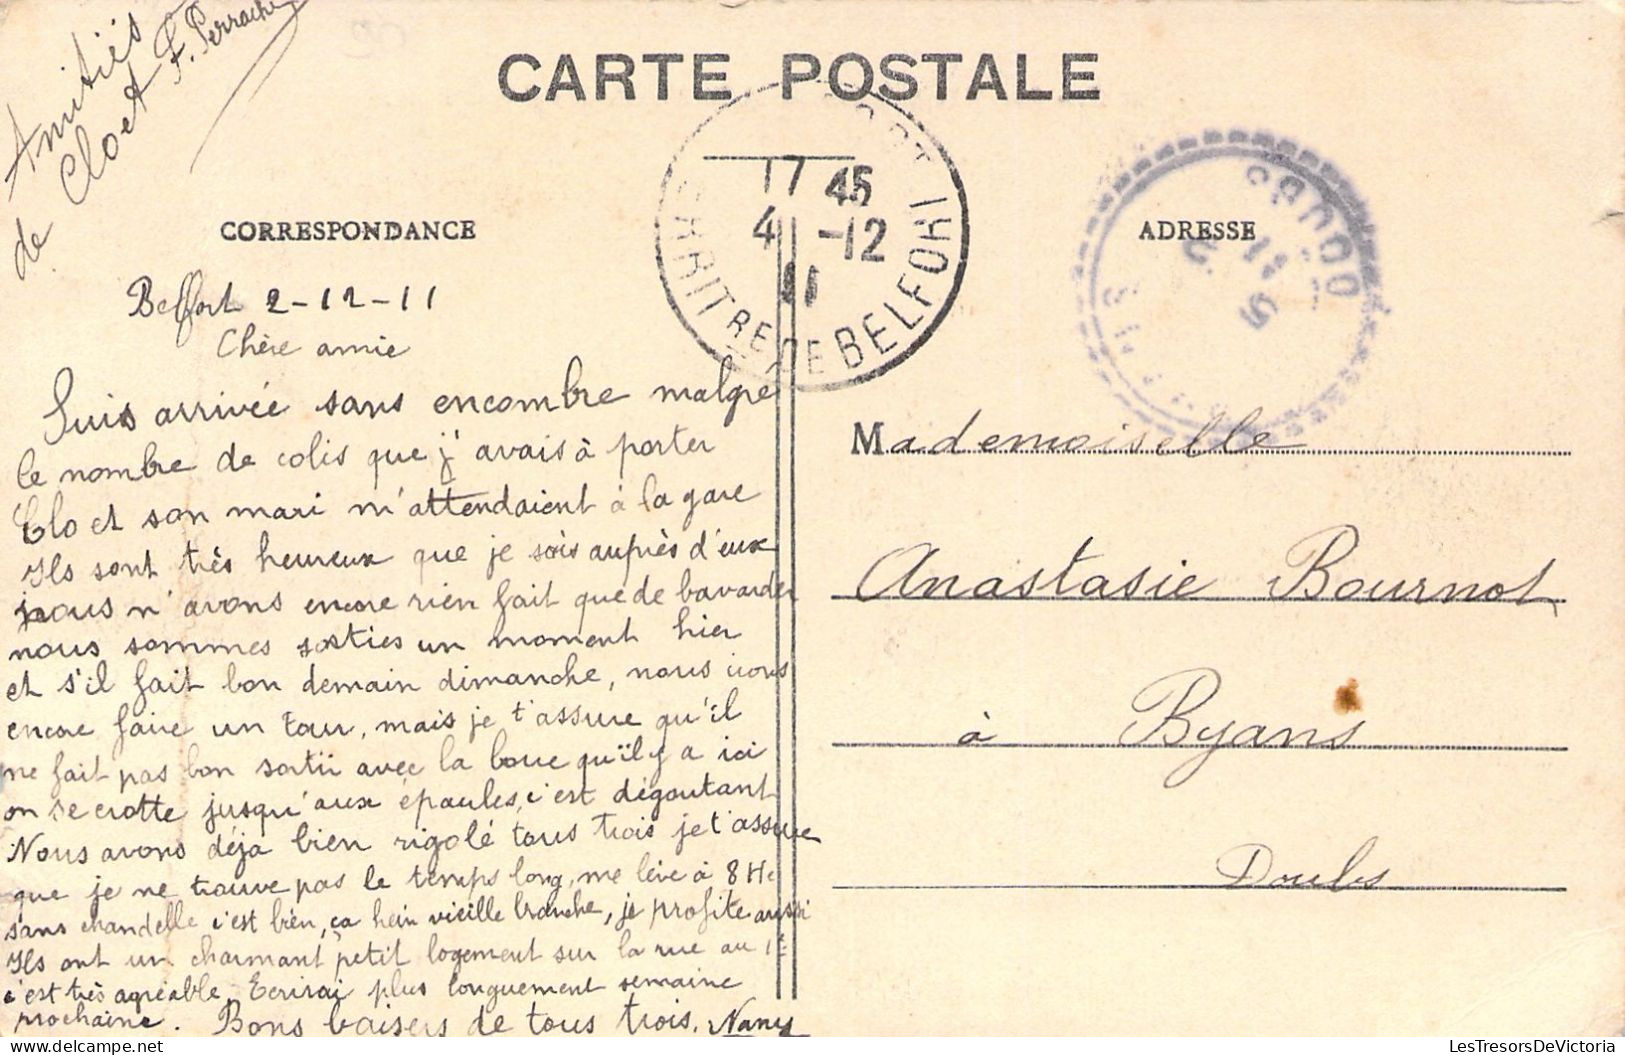 Amitiés
de Clo et F. Perrache
CARTE POSTALE
CORRESPONDANCE
ADRESSE
17 45
4 -12
11
TERRITRE DE BELFORT
DOUBS
Belfort 2-12-11
Chère amie
Suis arrivée sans encombre malgré
le nombre de colis que j'avais à porter
Clo et son mari m'attendaient à la gare
Ils sont très heureux que je sois auprès d'eux
nous n'avons encore rien fait que de bavarder
nous sommes sorties un moment hier
et s'il fait bon demain dimanche, nous irons
encore faire un tour, mais je t'assure qu'il
ne fait pas bon sortir avec la boue qu'il y a ici
on se crotte jusqu'aux épaules, c'est dégoutant
Nous avons déjà bien rigolé tous trois je t'assure
que je ne trouve pas le temps long, me lève à 8 He
sans chandelle c'est bien, ça hein vieille branche, je profite aussi
Ils ont un charmant petit logement sur la rue au 1er
c'est très agréable. Ecrirai plus longuement semaine
prochaine. Bons baisers de tous trois. Nany
Mademoiselle
Anastasie Bournot
à Byans
Doubs
LesTresorsDeVictoria